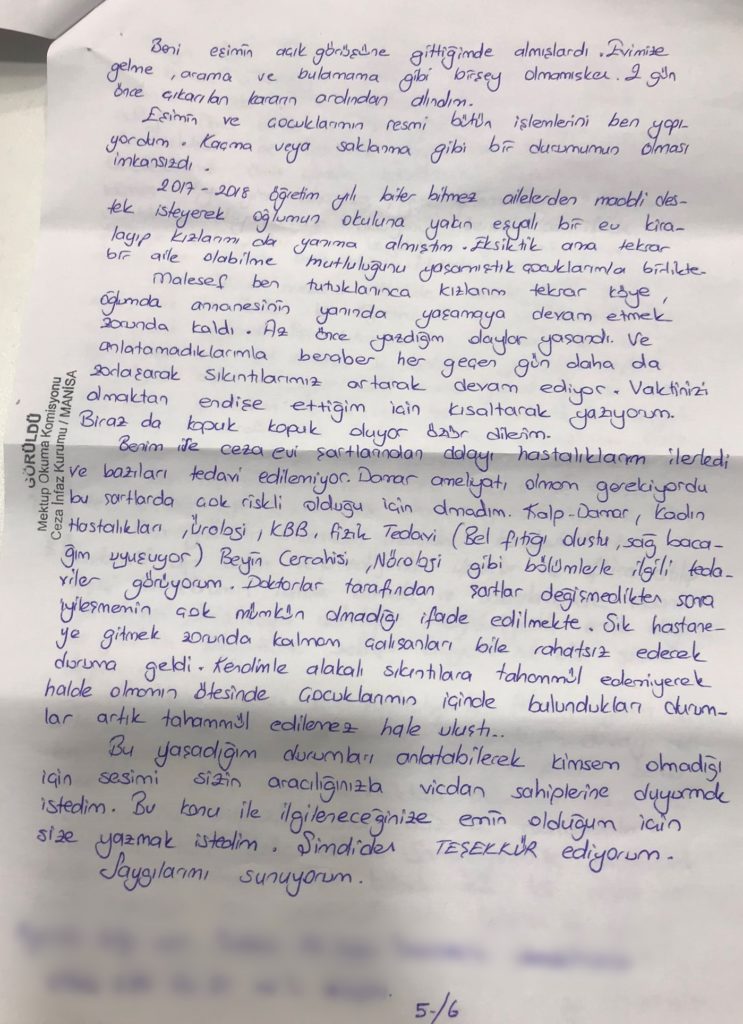 Beni eşimin açık görüşüne gittiğimde almışlardı. Evimize
gelme, arama ve bulamama gibi birşey olmamışken. 2 gün
önce çıkarılan kararın ardından alındım.
Eşimin ve çocuklarımın resmi bütün işlemlerini ben yapı-
yordum. Kaçma veya saklanma gibi bir durumumun olması
imkansızdı.
2017-2018 öğretim yılı biter bitmez ailelerden maddi des-
tek isteyerek oğlumun okuluna yakın eşyalı bir ev kira-
layıp kızlarımı da yanıma almıştım. Eksiktik ama tekrar
bir aile olabilme mutluluğunu yaşamıştık çocuklarımla birlikte.
Malesef ben tutuklanınca kızlarım tekrar köye,
oğlumda annanesinin yanında yaşamaya devam etmek
zorunda kaldı. Az önce yazdığım olaylar yaşandı. Ve
anlatamadıklarımla beraber her geçen gün daha da
zorlaşarak sıkıntılarımız artarak devam ediyor. Vaktinizi
almaktan endişe ettiğim için kısaltarak yazıyorum.
Biraz da kopuk kopuk oluyor özür dilerim.
Benim ise ceza evi şartlarından dolayı hastalıklarım ilerledi
ve bazıları tedavi edilemiyor. Damar ameliyatı olmam gerekiyordu
bu şartlarda çok riskli olduğu için olmadım. Kalp-Damar, Kadın
Hastalıkları, Üroloji, KBB, Fizik Tedavi (Bel fıtığı oluştu, sağ baca-
ğım uyuşuyor) Beyin Cerrahisi, Nöroloji gibi bölümlerle ilgili teda-
viler görüyorum. Doktorlar tarafından şartlar değişmedikten sonra
iyileşmemin çok mümkün olmadığı ifade edilmekte. Sık hastane-
ye gitmek zorunda kalmam çalışanları bile rahatsız edecek
duruma geldi. Kendimle alakalı sıkıntılara tahammül edemiyerek
halde olmamın ötesinde çocuklarımın içinde bulundukları durum-
lar artık tahammül edilemez hale ulaştı..
Bu yaşadığım durumları anlatabilecek kimsem olmadığı
için sesimi sizin aracılığınızla vicdan sahiplerine duyurmak
istedim. Bu konu ile ilgileneceğinize emin olduğum için
size yazmak istedim. Şimdiden TEŞEKKÜR ediyorum.
Saygılarımı sunuyorum.
GÖRÜLDÜ
Mektup Okuma Komisyonu
Ceza İnfaz Kurumu / MANİSA
5-/6